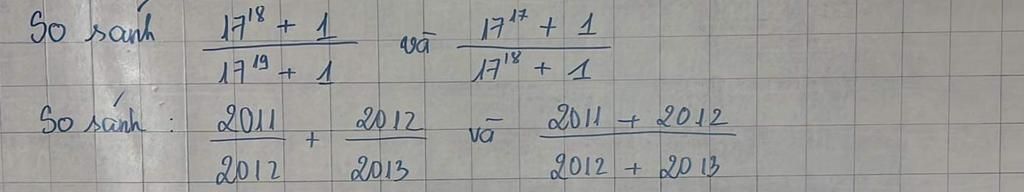 So sánh (17^18 + 1)/(17^19 + 1) và (17^17 + 1)/(17^18 + 1)
So sánh : 2011/2012 + 2012/2013 và (2011 + 2012)/(2012 + 2013)